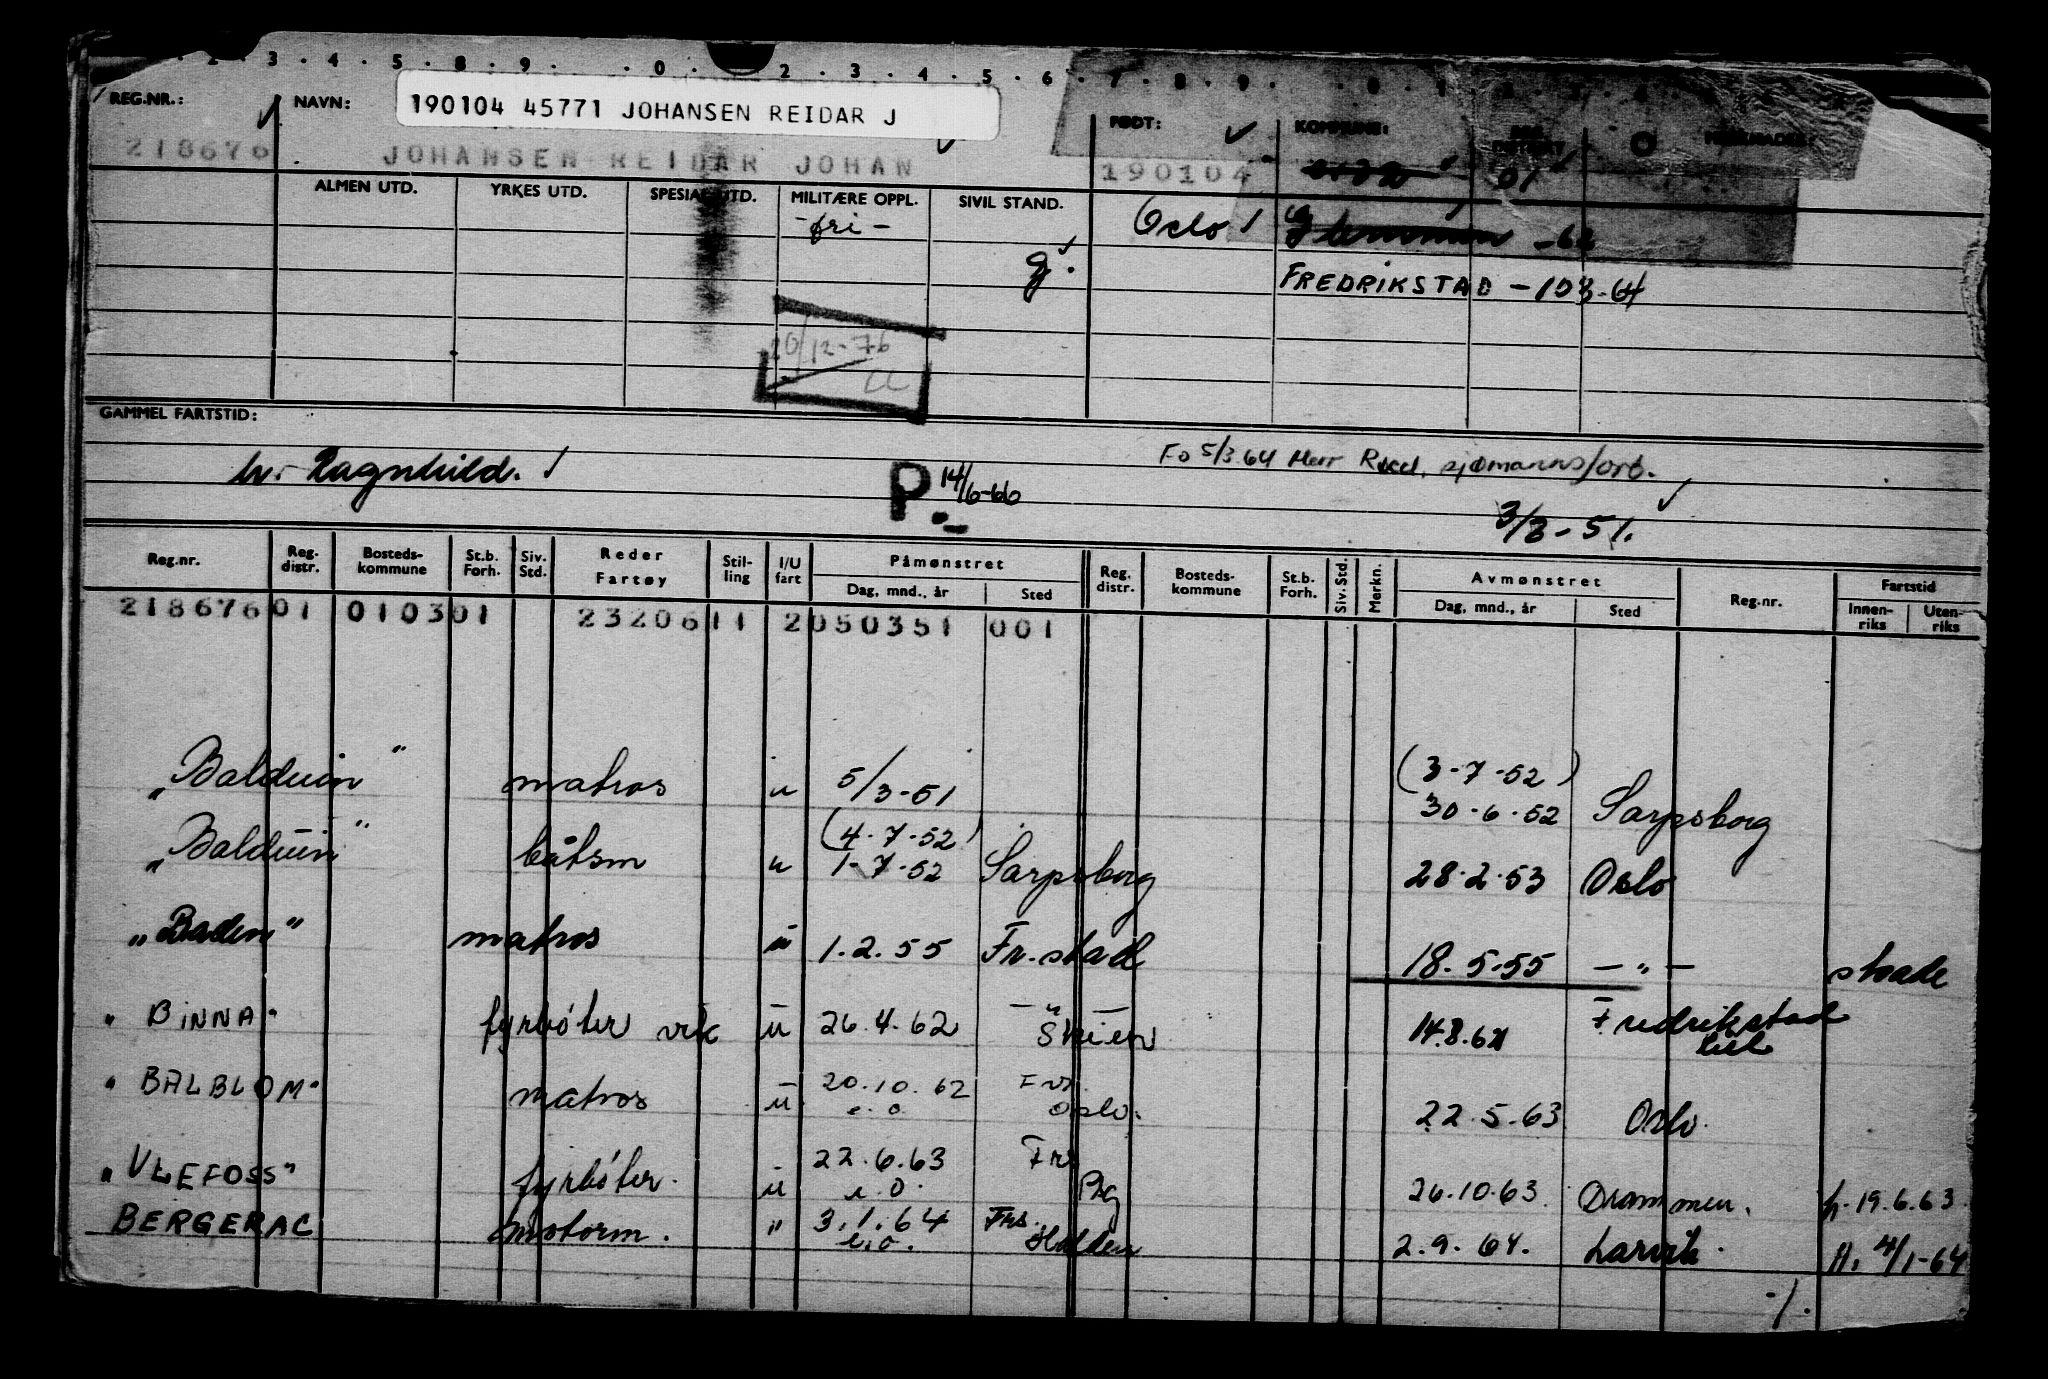 2 . 3 . 4 . 5 . 8 . 9 . . 0 . 2 . 3 . 4 . 5 . 6 . 7 . 8 . 9 . . 0 . 1 . 2 . 3 . 4
REG.NR.: NAVN: 190104 45771 JOHANSEN REIDAR J FØDT: KOMMUNE: REG. DISTRIKT O MERKNADER:
218676 JOHANSEN REIDAR JOHAN 190104 01
ALMEN UTD. YRKES UTD. SPESIAL UTD. MILITÆRE OPPL. SIVIL STAND.
-fri- Oslo Glemmen -62
g.
FREDRIKSTAD - 103-64
20/12-76
CL
GAMMEL FARTSTID:
h. Ragnhild. P.- 14/6-66 Fo 5/3.64 Herr sjømannsforb.
3/3-51.
Reg.nr. Reg. distr. Bosteds-kommune St.b. Forh. Siv. Std. Reder Fartøy Stil-ling I/U fart Påmønstret Reg. distr. Bosteds-kommune St.b. Forh. Siv. Std. Merkn. Avmønstret Reg.nr. Fartstid
Dag, mnd., år Sted Dag, mnd., år Sted Innen-riks Uten-riks
218676 01 0103 01 2320611 2 050351 001
(3-7-52)
"Balduin" matros u 5/3-51 30-6-52 Sarpsborg
(4-7-52)
"Balduin" båtsm u 1-7-52 Sarpsborg 28.2.53 Oslo
"Baden" matros u 1.2.55 Fr.stad 18.5.55 — " — skade
"BINNA" fyrbøter vik u 26.4.62 — " — Skien 14.8.62 Fredrikstad
"BALBLOM" matros u 20.10.62 Frs.
e.o Oslo. 22.5.63 Oslo.
"ULEFOSS" fyrbøter. u 22.6.63 Frs
e.o. Brg 26.10.63 Drammen. h. 19.6.63
BERGERAC motorm. " 3.1.64 Frs.
e.o. Halden 2.9.64. Larvik. H. 4/1-64
-/.